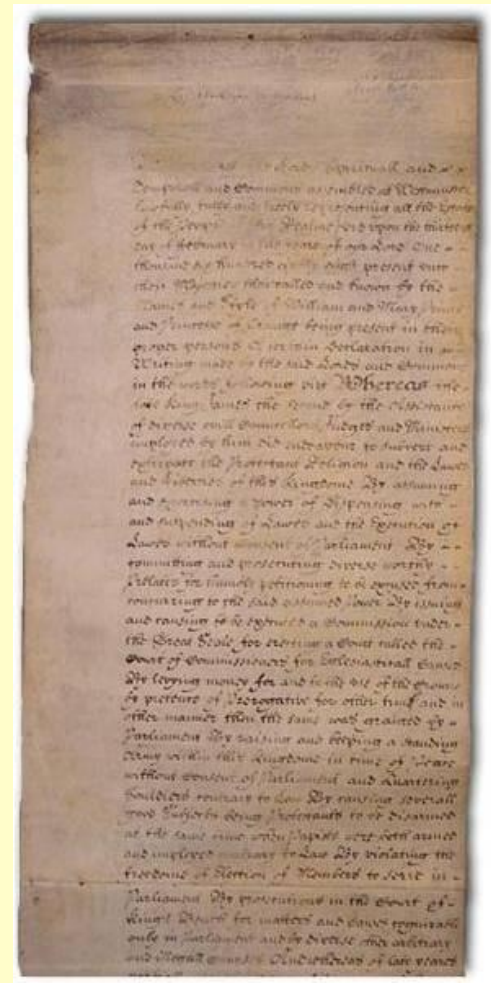 Lords Spirituall and
Temporall and Commons assembled at Westminster
Lawfully fully and freely representing all the Estates
of the People of this Realme did upon the thirteenth
day of February in the yeare of our Lord One
thousand six hundred eighty eight present unto
their Majesties then called and known by the
Names and Stile of William and Mary Prince
and Princesse of Orange being present in their
proper persons a certain Declaration in
Writing made by the said Lords and Commons
in the words following viz Whereas the
late King James the second by the Assistance
of diverse evill Councellors Judges and Ministers
imployed by him did endeavour to subvert and
extirpate the Protestant Religion and the Lawes
and Liberties of this Kingdome By assuming
and exercising a power of dispensing with
and suspending of Lawes and the Execution of
Lawes without Consent of Parliament By
committing and prosecuting diverse worthy
Prelates for humbly petitioning to be excused from
concurring to the said assumed Power By issuing
and causing to be executed a Commission under
the Great Seale for erecting a Court called the
Court of Commissioners for Ecclesiasticall Causes
By levying money for and to the use of the Crowne
by pretence of Prerogative for other time and in
other manner then the same was granted by
Parliament By raising and keeping a standing
Army within this Kingdome in time of Peace
without consent of Parliament and Quartering
Souldiers contrary to Law By causing severall
good Subjects being Protestants to be disarmed
at the same time when Papists were both armed
and imployed contrary to Law By violating the
freedome of Election of Members to serve in
Parliament By prosecutions in the Court of
Kings Bench for matters and causes cognizable
only in Parliament and by diverse other arbitrary
and illegall courses And whereas of late yeares